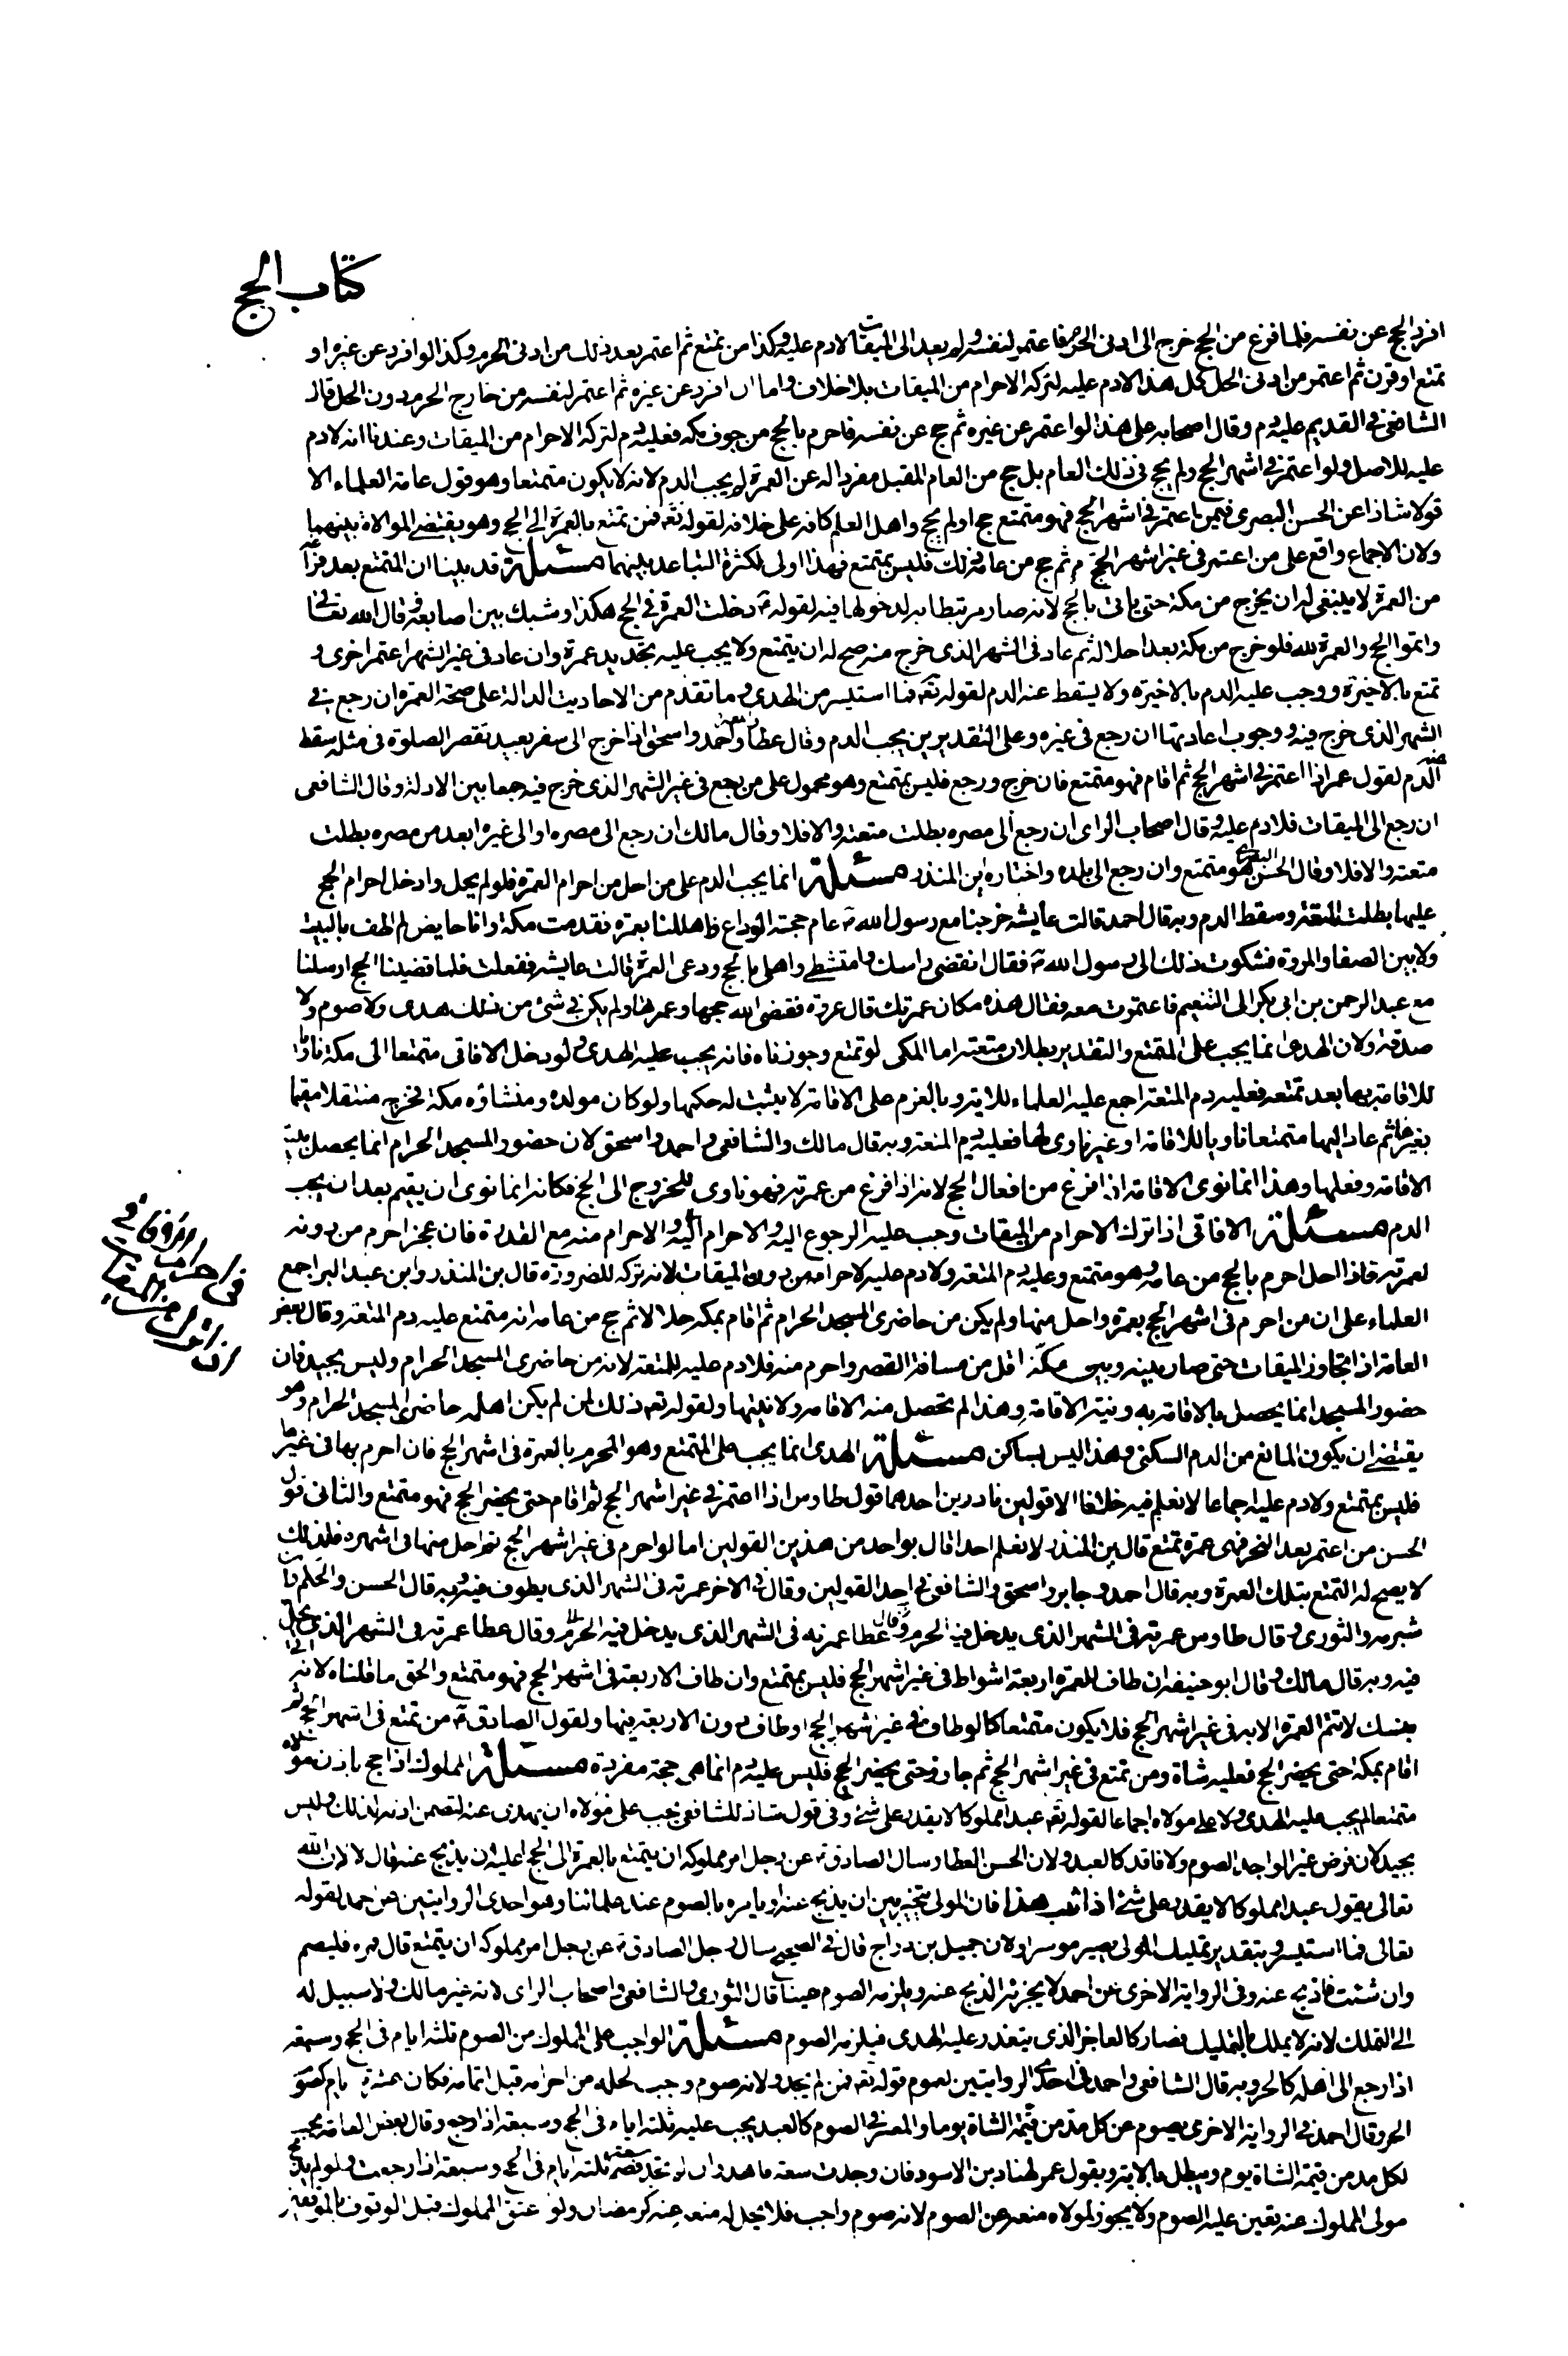 كتاب الحج
افرد الحج عن نفسه فلما فرغ من الحج خرج الى ادنى الحل فاعتمر لنفسه ولم يعد الى الميقات لا دم عليه وكذا من تمتع ثم اعتمر بعد ذلك من ادنى الحرم وكذا لو افرد عن غيره او
تمتع او قرن ثم اعتمر من ادنى الحل كل هذا لا دم عليه لتركه الاحرام من الميقات بلا خلاف واما ان افرد عن غيره ثم اعتمر لنفسه من خارج الحرم دون الحل قال
الشافعي في القديم عليه دم وقال اصحابه على هذا لو اعتمر عن غيره ثم حج عن نفسه فاحرم بالحج من جوف مكه فعليه دم لتركه الاحرام من الميقات وعندنا انه لا دم
عليه للاصل ولو اعتمر في اشهر الحج ولم يحج في ذلك العام بل حج من العام المقبل مفردا له عن العمرة لم يجب الدم لانه لا يكون متمتعا وهو قول عامة العلماء الا
قولا شاذا عن الحسن البصري فيمن اعتمر في اشهر الحج فهو متمتع حج او لم يحج واهل العلم كافه على خلافه لقوله تعه فمن تمتع بالعمرة الى الحج وهو يقتضى الموالاة بينهما
ولان الاجماع واقع على من اعتمر في غير اشهر الحج ثم حج من عامه ذلك فليس بمتمتع فهذا اولى لكثرة التباعد بينهما مسئلة قد بينا ان المتمتع بعد فراغه
من العمرة لا ينبغي له ان يخرج من مكة حتى ياتى بالحج لانه صار مرتبطا به لدخولها فيه لقوله دخلت العمرة في الحج هكذا وشبك بين اصابعه وقال الله تعالى
واتموا الحج والعمرة لله فلو خرج من مكة بعد احلاله ثم عاد في الشهر الذى خرج منه صح له ان يتمتع ولا يجب عليه تجديد عمرة وان عاد في غير الشهر اعتمر اخرى و
تمتع بالاخيرة ووجب عليه الدم بالاخيرة ولا يسقط عنه الدم لقوله تعه فما استيسر من الهدى وما تقدم من الاحاديث الدالة على صحة العمرة ان رجع في
الشهر الذى خرج فيه ووجوب اعادتها ان رجع في غيره وعلى التقديرين يجب الدم وقال عطا واحمد واسحق اذا خرج الى سفر بعيد تقصر الصلوة في مثله سقط
عنه الدم لقول عمر اذا اعتمر في اشهر الحج ثم اقام فهو متمتع فان خرج ورجع فليس بمتمتع وهو محمول على من رجع في غير الشهر الذى خرج فيه جمعا بين الادلة وقال الشافعى
ان رجع الى الميقات فلا دم عليه وقال اصحاب الراى ان رجع الى مصره بطلت متعته والا فلا وقال مالك ان رجع الى مصره او الى غيره ابعد من مصره بطلت
متعته والا فلا وقال الحسن البصرى هو متمتع وان رجع الى بلده واختاره ابن المنذر مسئلة انما يجب الدم على من احل من احرام العمرة فلو لم يحل وادخل احرام الحج
عليها بطلت المتعة وسقط الدم وبه قال احمد قالت عايشه خرجنا مع رسول الله عام حجة الوداع فاهللنا بعمرة فقدمت مكة وانا حايض لم اطف بالبيت
ولا بين الصفا والمروة فشكوت ذلك الى رسول الله فقال انقضى راسك وامتشطى واهلى بالحج ودعى العمرة قالت عايشه ففعلت فلما قضينا الحج ارسلنا
مع عبد الرحمن بن ابى بكر الى التنعيم فاعتمرت معه فقال هذه مكان عمرتك قال عروة فقضى الله حجها وعمرتها ولم يكن في شئ من ذلك هدى ولا صوم ولا
صدقة ولان الهدى انما يجب على المتمتع والتقدير بطلان متعته اما المكى لو تمتع وجوزناه فانه يجب عليه الهدى ولو دخل الافاقى متمتعا الى مكة ناويا
للاقامة بها بعد تمتعه فعليه دم المتعة اجمع عليه العلماء للاية وبالعزم على الاقامة لا يثبت له حكمها ولو كان مولده ومنشاؤه مكة فخرج منتقلا مقيما
بغيرها ثم عاد اليها متمتعا ناويا للاقامة او غير ناوى لها فعليه دم المتعة وبه قال مالك والشافعى واحمد واسحق لان حضور المسجد الحرام انما يحصل بنية
الاقامة وفعلها وهذا انما نوى الاقامة اذا فرغ من افعال الحج لانه اذا فرغ من عمرته فهو ناوى للخروج الى الحج فكانه انما نوى ان يقيم بعد ان يجب
الدم مسئلة الافاقى اذا ترك الاحرام من الميقات وجب عليه الرجوع اليه والاحرام منه مع القدرة فان عجز احرم من دونه
لعمرته فاذا احل احرم بالحج من عامه وهو متمتع وعليه دم المتعة ولا دم عليه لاحرامه من دون الميقات لانه تركه للضرورة قال بن المنذر وابن عبد البر اجمع
العلماء على ان من احرم في اشهر الحج بعمرة واحل منها ولم يكن من حاضرى المسجد الحرام ثم اقام بمكه حلالا ثم حج من عامه انه متمتع عليه دم المتعة وقال بعض
العامة اذا تجاوز الميقات حتى صار بينه وبين مكة اقل من مسافة القصر واحرم منه فلا دم عليه للمتعة لانه من حاضرى المسجد الحرام وليس بجيد فان
حضور المسجد انما يحصل بالاقامة به ونية الاقامة وهذا لم تحصل منه الاقامة ولا نيتها ولقوله تعه ذلك لمن لم يكن اهله حاضرى المسجد الحرام وهو
يقتضى ان يكون المانع من الدم السكنى وهذا ليس بساكن مسئلة الهدى انما يجب على المتمتع وهو المحرم بالعمرة في اشهر الحج فان احرم بها في غيرها
فليس بمتمتع ولا دم عليه اجماعا لا نعلم فيه خلافا الا قولين نادرين احدهما قول طاوس اذا اعتمر في غير اشهر الحج ثم اقام حتى يحضر الحج فهو متمتع والثانى قول
الحسن من اعتمر بعد النحر فهى عمرة تمتع قال بن المنذر لا نعلم احدا قال بواحد من هذين القولين اما لو احرم في غير اشهر الحج ثم احل منها في اشهره فلذلك
لا يصح له التمتع بتلك العمرة وبه قال احمد وجابر واسحق والشافعى في احد القولين وقال في الاخر عمرته في الشهر الذى يطوف فيه وبه قال الحسن والحكم وابن
شبرمه والثورى وقال طاوس عمرته في الشهر الذى يدخل فيه الحرم وقال عطا عمرته في الشهر الذى يدخل فيه الحرم وقال عطا عمرته في الشهر الذى يحل
فيه وبه قال مالك وقال ابو حنيفه ان طاف للعمرة اربعة اشواط في غير اشهر الحج فليس بمتمتع وان طاف الاربعة في اشهر الحج فهو متمتع والحق ما قلناه لانه اتى
بنسك لا تتم العمرة الا به في غير اشهر الحج فلا يكون متمتعا كما لو طاف في غير اشهر الحج او طاف دون الاربعة فيها ولقول الصادق من تمتع في اشهر الحج ثم
اقام بمكة حتى يحضر الحج فعليه شاة ومن تمتع في غير اشهر الحج ثم جاور حتى يحضر الحج فليس عليه دم انما هى حجة مفردة مسئلة المملوك اذا حج باذن مولاه
متمتعا لم يجب عليه الهدى ولا على مولاه اجماعا لقوله تعه عبدا مملوكا لا يقدر على شئ وفي قول شاذ للشافعى يجب على مولاه ان يهدى عنه لتضمن اذنه لذلك وليس
بجيد لان فرض غير الواجد الصوم ولا فاقد كالعبد ولان الحسن العطار سال الصادق عن رجل امر مملوكه ان يتمتع بالعمرة الى الحج اعليه ان يذبح عنه قال لا لان الله
تعالى يقول عبدا مملوكا لا يقدر على شئ اذا ثبت هذا فان المولى يتخير بين ان يذبح عنه او يامره بالصوم عند علمائنا وهو احدى الروايتين عن احمد لقوله
تعالى فما استيسر وبتقدير تمليك المولى يصير موسرا ولان جميل بن دراج قال في الصحيح سال رجل الصادق عن رجل امر مملوكه ان يتمتع قال فمره فليصم
وان شئت فاذبح عنه وفي الرواية الاخرى عن احمد لا يجزئه الذبح عنه ويلزمه الصوم عينا قال الثورى والشافعى واصحاب الراى لانه غير مالك ولا سبيل له
الى التملك لانه لا يملك بالتمليك فصار كالعاجز الذى يتعذر عليه الهدى فيلزمه الصوم مسئلة الواجب على المملوك من الصوم ثلثه ايام في الحج وسبعه
اذا رجع الى اهله كالحر وبه قال الشافعى واحمد في احدى الروايتين لعموم قوله تعه فمن لم يجد ولانه صوم وجب لحله من احرامه قبل اتمامه فكان عشرة ايام كصوم
الحر وقال احمد في الرواية الاخرى يصوم عن كل مد من قيمة الشاة يوما والمعسر في الصوم كالعبد يجب عليه ثلثه ايام في الحج وسبعه اذا رجع وقال بعض العامة يجب
لكل مد من قيمة الشاة يوم ويبطل بالاية وبقول عمر لهناد بن الاسود فان وجدت سعة فاهد وان لم تجد سعة فصم ثلثة ايام في الحج وسبعه اذا رجعت ولو لم يذبح
مولى المملوك عنه تعين عليه الصوم ولا يجوز لمولاه منعه عن الصوم لانه صوم واجب فلا يحل له منعه عنه كرمضان ولو عتق المملوك قبل الوقوف بالموقفين